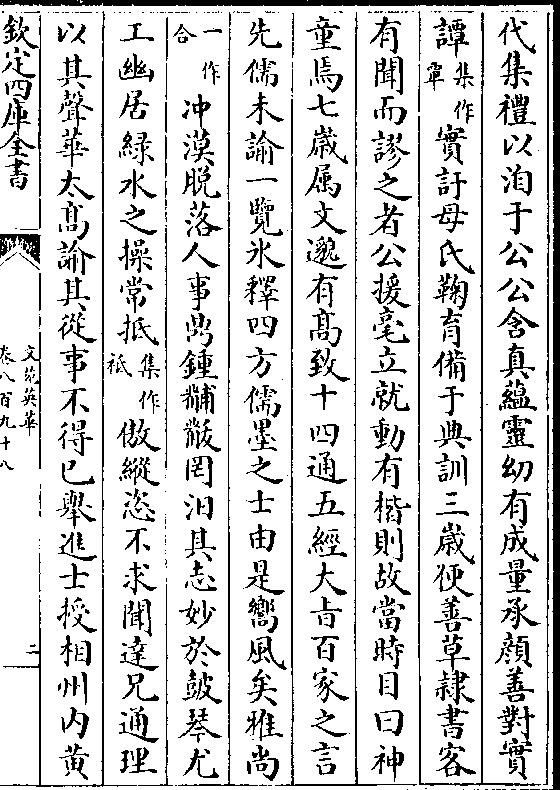 代集禮以洎于公公含真蘊靈幼有成量承顔善對實
譚集作覃實訃母氏鞠育備于典訓三歲便善草隸書客
有聞而謬之者公援毫立就動有楷則故當時目曰神
童焉七歲属文邈有髙致十四通五經大㫖百家之言
先儒未諭一覽氷釋四方儒墨之士由是嚮風矣雅尚
一作合冲漠脱落人事鼎鍾黼黻罔汨其志妙於鼓琴尤
工幽居緑水之操常抵集作祗傲縱恣不求聞達兄通理
以其聲華太髙諭其從事不得已舉進士授相州内黄
欽定四庫全書
文苑英華
卷八百九十八
二